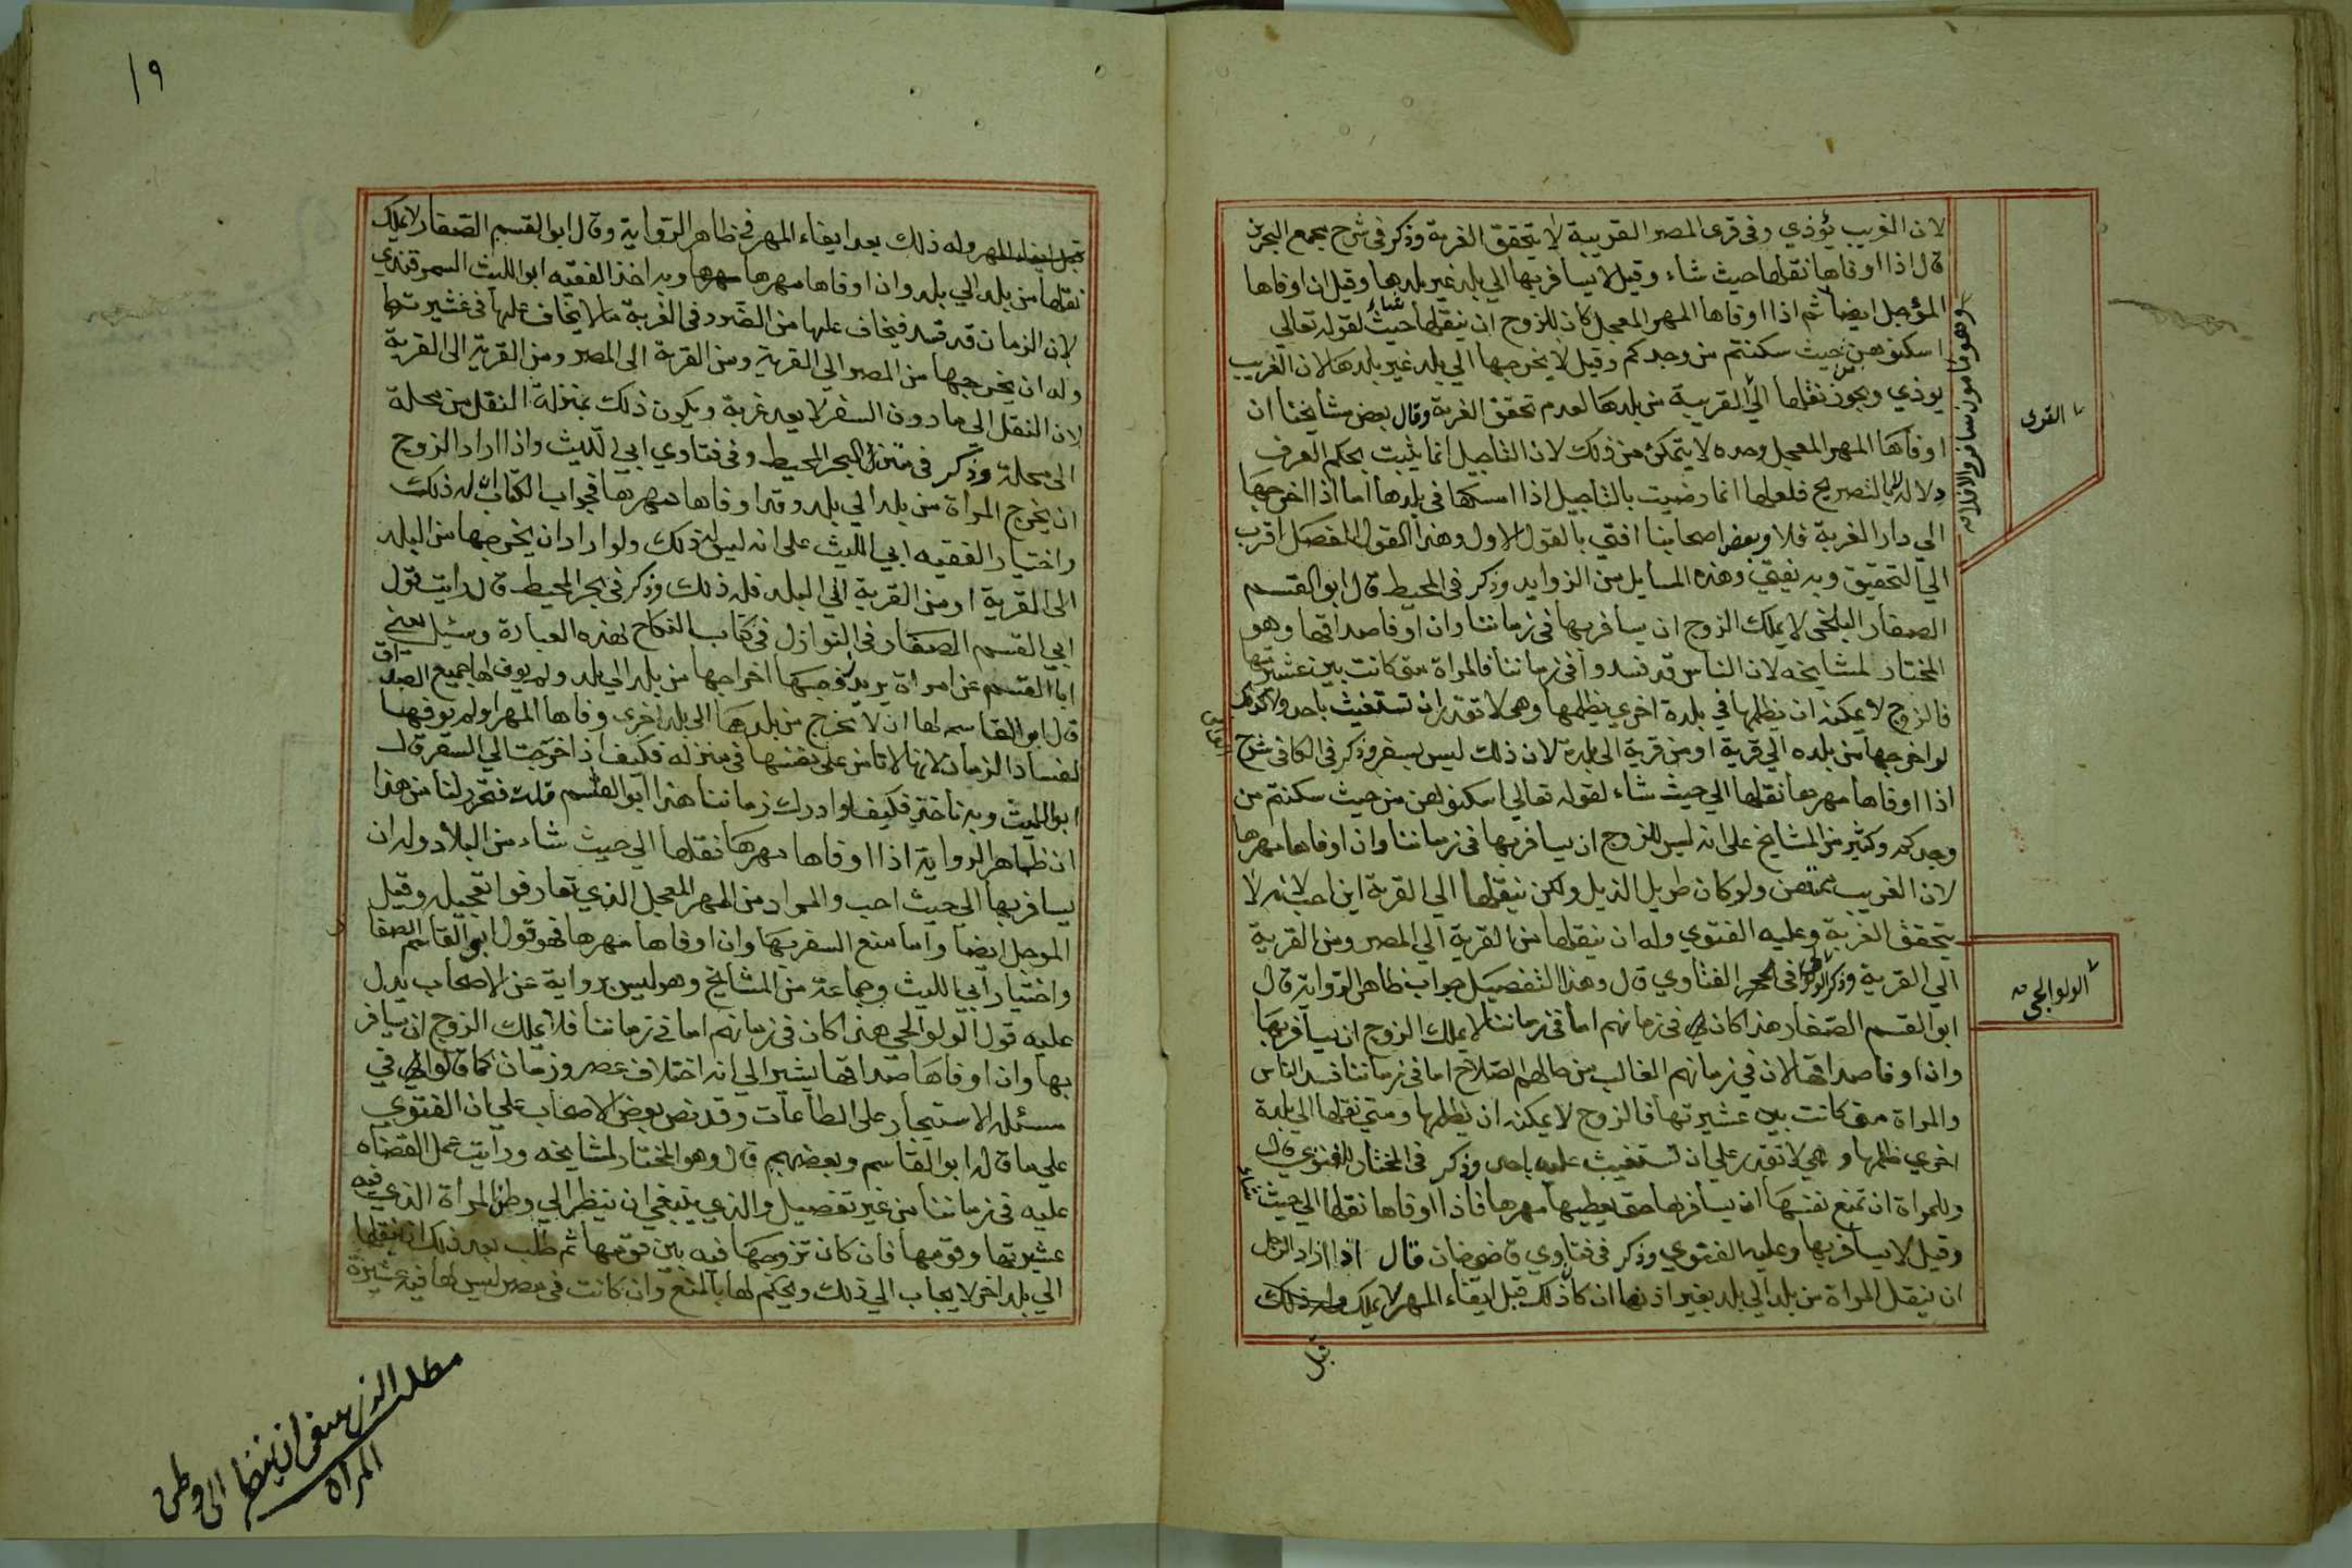 لان الغريب يؤذي وفى قرى المصر القريبة لا يتحقق الغربة وذكر فى شرح مجمع البحرين
قال اذا اوفاها نقلها حيث شاء وقيل لا يسافر بها الي بلد غير بلدها وقيل ان اوفاها
المؤجل ايضا ثم اذا اوفاها المهر المعجل كان للزوج ان ينقلها حيث شاء لقوله تعالي
اسكنوهن من حيث سكنتم من وجدكم وقيل لا يخرجها الي بلد غير بلدها لان الغريب
يوذي ويجوز نقلها الي القريبة من بلدها لعدم تحقق الغربة وقال بعض مشايخنا ان
اوفاها المهر المعجل وحده لا يتمكن من ذلك لان التاجيل انما يثبت بحكم العرف
دلالة لا بالتصريح فلعلها انما رضيت بالتاجيل اذا امسكها فى بلدها اما اذا اخرجها
الي دار الغربة فلا وبعض اصحابنا افتى بالقول الاول وهذا القول المفصل اقرب
الي التحقيق وبه نفتي وهذه المسايل من الزوايد وذكر فى المحيط قال ابو القسم
الصفار البلخى لا يملك الزوج ان يسافر بها فى زماننا وان اوفا صداقها وهو
المختار لمشايخه لان الناس قد فسدوا فى زماننا فالمراة متى كانت بين عشيرتها
فالزوج لا يمكنه ان يظلمها في بلدة اخري يظلمها وهى لا تقدر ان تستغيث باحد ولا كذلك
لو اخرجها من بلده الي قرية او من قرية الى بلدة لان ذلك ليس بسفر وذكر فى الكافى شرح
اذا اوفاها مهرها نقلها الي حيث شاء لقوله تعالي اسكنوهن من حيث سكنتم من
وجدكم وكثير من المشايخ على انه ليس للزوج ان يسافر بها فى زماننا وان اوفاها مهرها
لان الغريب ممتهن ولو كان طويل الذيل ولكن ينقلها الي القرية اين احب لانه لا
يتحقق الغربة وعليه الفتوي وله ان ينقلها من القرية الي المصر ومن القرية
الي القرية وذكر فى الفتاوي قال وهذا التفصيل جواب ظاهر الرواية قال
ابو القسم الصفار هذا كان فى زمانهم اما فى زماننا لا يملك الزوج ان يسافر بها
وان اوفا صداقها لان في زمانهم الغالب من حالهم الصلاح اما فى زماننا فسد الناس
والمراة متى كانت بين عشيرتها فالزوج لا يمكنه ان يظلمها ومتى نقلها الي بلدة
اخري ظلمها وهي لا تقدر علي ان تستغيث عليه باحد وذكر فى المختار للفتوي قال
وللمراة ان تمنع نفسها ان يسافر بها حتى يعطيها مهرها فاذا اوفاها نقلها الي حيث شاء
وقيل لا يسافر بها وعليه الفتوي وذكر فى فتاوي قاضي خان قال اذا اراد الرجل
ان ينقل المراة من بلد الي بلد بغير اذنها ان كان ذلك قبل ايفاء المهر لا يملك وله ذلك
قبل
القرى
الولوالجي
١٩
قبل ايفاء المهر وله ذلك بعد ايفاء المهر فى ظاهر الرواية وقال ابو القسم الصفار لا يملك
نقلها من بلد الي بلد وان اوفاها مهرها وبه اخذ الفقيه ابو الليث السمرقندي
لان الزمان قد فسد فيخاف عليها من الضرر فى الغربة ما لا يخاف عليها فى عشيرتها
وله ان يخرجها من المصر الي القرية ومن القرية الى المصر ومن القرية الى القرية
لان النقل الى ما دون السفر لا يعد غربة ويكون ذلك بمنزلة النقل من محلة
الى محلة وذكر فى البحر المحيط وفى فتاوي ابي الليث واذا اراد الزوج
ان يخرج المراة من بلد الي بلد وقد اوفاها مهرها فجواب الكتاب ان له ذلك
واختيار الفقيه ابي الليث على انه ليس له ذلك ولو اراد ان يخرجها من البلد
الى القرية او من القرية الي البلد فله ذلك وذكر فى بحر المحيط قال رايت قول
ابي القسم الصفار فى النوازل فى كتاب النكاح بهذه العبارة وسئيل يعني
ابا القسم عن امراة يريد زوجها اخراجها من بلد الي بلد ولم يوف لها جميع الصداق
قال ابو القاسم لها ان لا تخرج من بلدها الى بلد اخرى وفاها المهر او لم يوفها
لفساد الزمان لانها لا تامن على نفسها فى منزله فكيف اذا خرجت الي السفر قال
ابو الليث وبه ناخذ فكيف لو ادرك زماننا هذا ابو القاسم قلت فتحرر لنا من هذا
ان ظاهر الرواية اذا اوفاها مهرها نقلها الي حيث شاء من البلاد وله ان
يسافر بها الى حيث احب والمراد من المهر المعجل الذي تعارفوا تعجيله وقيل
الموجل ايضا واما منع السفر بها وان اوفاها مهرها فهو قول ابو القاسم الصفار
واختيار ابي الليث وجماعة من المشايخ وهو ليس برواية عن الاصحاب يدل
عليه قول الولوالجي هذا كان فى زمانهم اما في زماننا فلا يملك الزوج ان يسافر
بها وان اوفاها صداقها يشير الي انه اختلاف عصر وزمان كما قالوا في
مسئلة الاستيجار على الطاعات وقد نص بعض الاصحاب على ان الفتوي
على ما قال ابو القاسم وبعضهم قال وهو المختار لمشايخه ورايت عمل القضاه
عليه فى زماننا من غير تفصيل والذي ينبغي ان ينظر الي وطن المراة الذي فيه
عشيرتها وقومها فان كان تزوجها فيه بين قومها ثم طلب بعد ذلك ان ينقلها
الي بلد اخر لا يجاب الي ذلك ويحكم لها بالمنع وان كانت فى مصر ليس لها فيه عشيرة
مطلب الذي ينبغي ان ينظر الى وطن
المراة